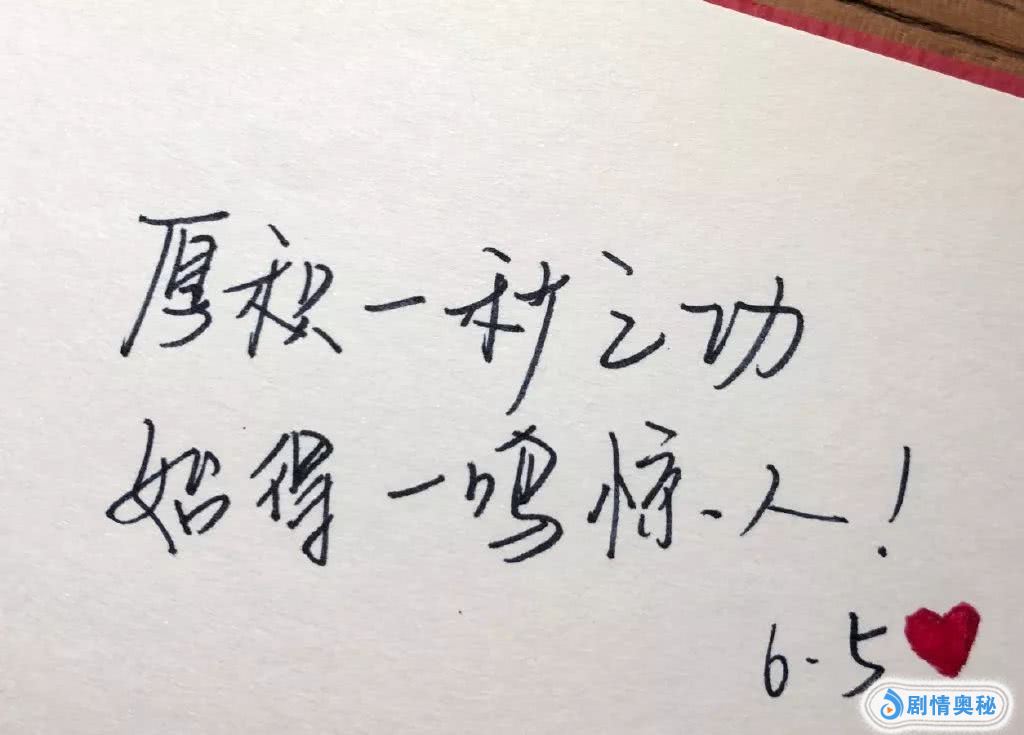 厚积一秒之功
始得一鸣惊人!
6.5
剧情奥秘